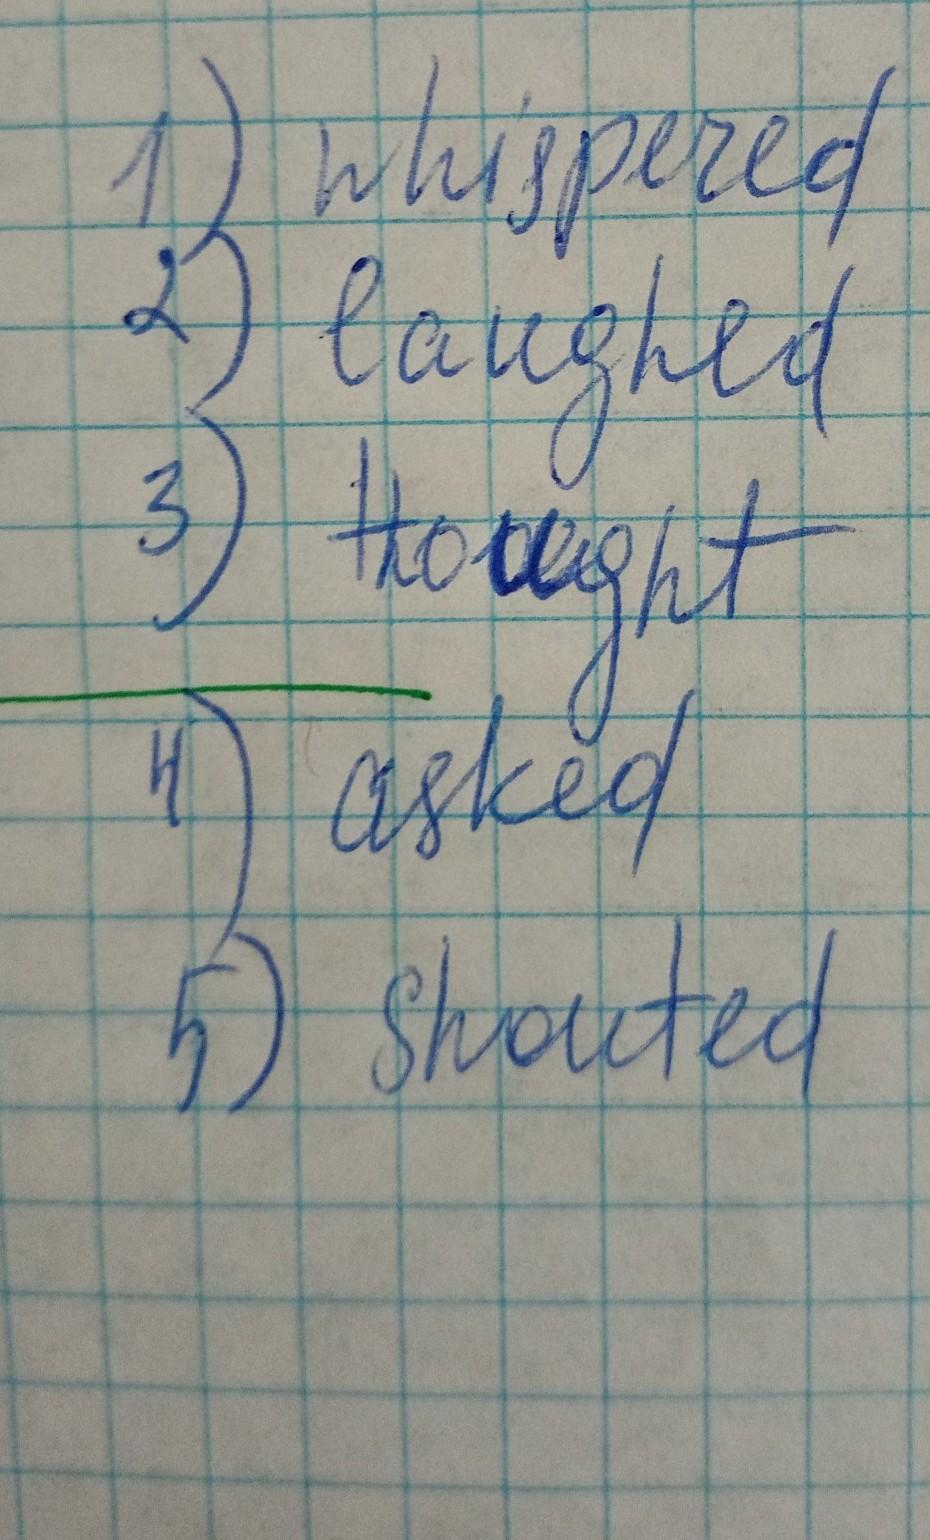 1) whispered
2) laughed
3) thought
4) asked
5) shouted